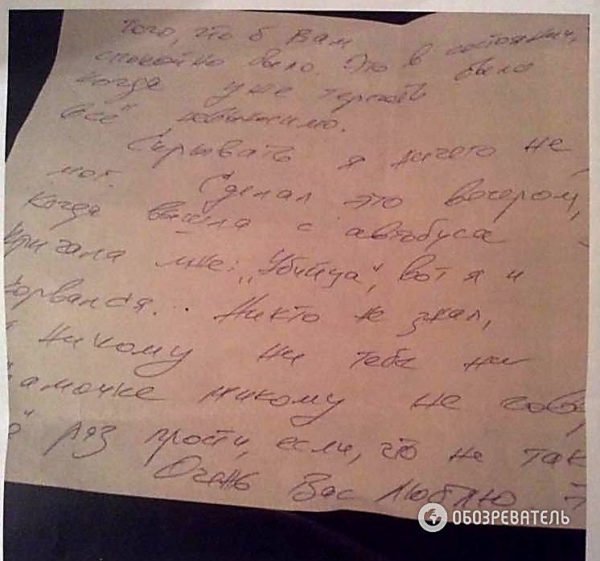 того, что б Вам
спокойно было. Это в состоянии,
когда уже терпеть было
всё невыносимо.
Скрывать я ничего не
мог. Сделал это вечером,
когда вышла с автобуса
кричала мне: „Убийца", вот я и
сорвался... Никто не знал,
никому ни тебе ни
мамочке никому не гов
раз прости, если, что не так
Очень Вас люблю
ОБОЗРЕВАТЕЛЬ